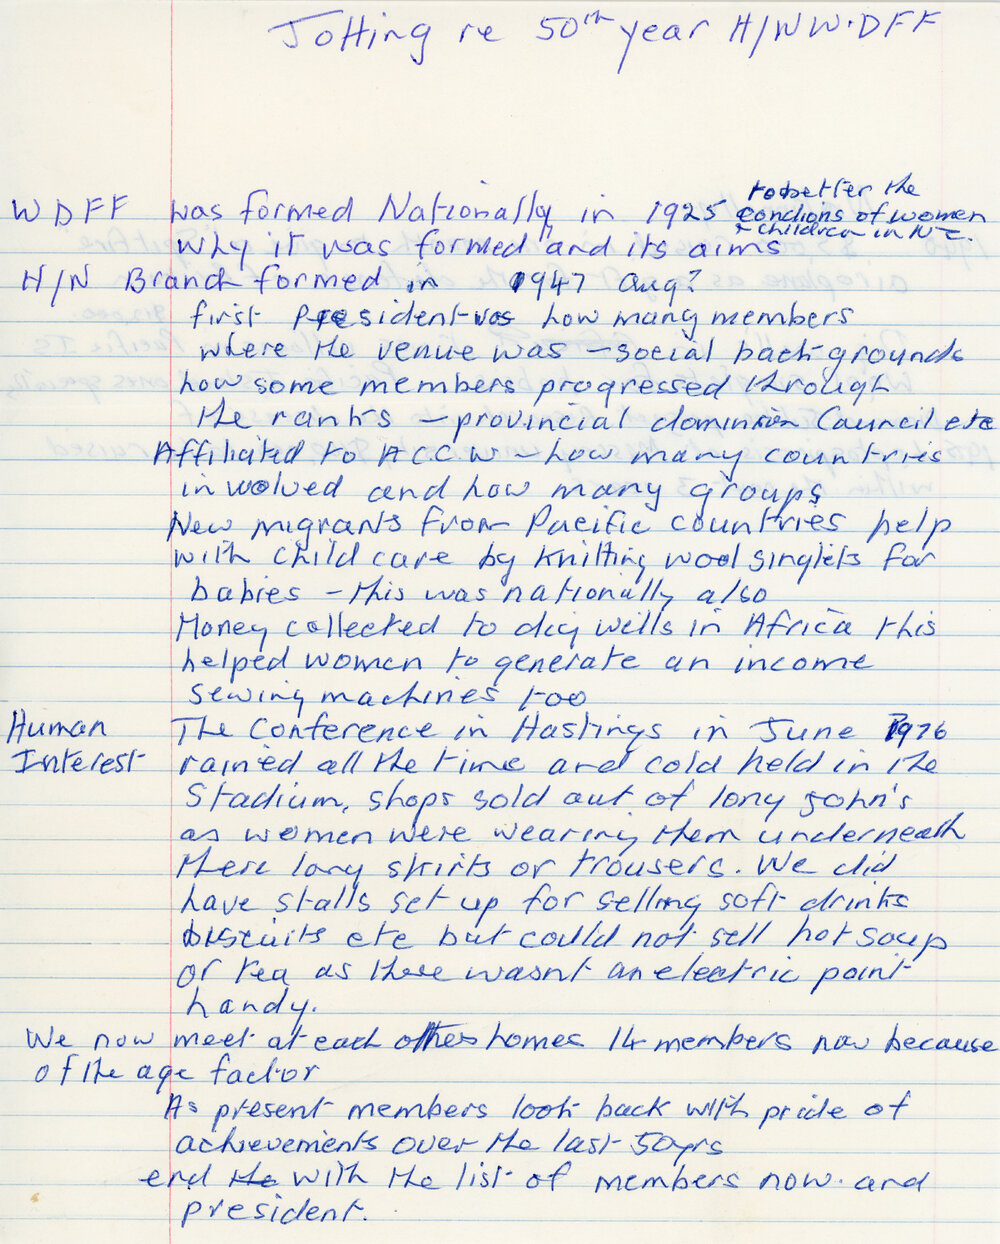 Jotting re 50th year H/N W.DFF
to better the
WDFF was formed Nationally in 1925 condions of women
+ children in N Z.
why it was formed and its aims
H/N Branch formed in 1947 Aug?
first President was how many members
where the venue was - social back grounds
how some members progressed through
the ranks - provincial dominion Council etc
Affiliated to ACCW - how many countries
involved and how many groups
New migrants from Pacific countries help
with child care by knitting wool singlets for
babies - this was nationally also
Money collected to dig wells in Africa this
helped women to generate an income
sewing machines too
Human The Conference in Hastings in June 1976
Interest rained all the time and cold held in the
Stadium, shops sold out of long john's
as women were wearing them underneath
there long skirts or trousers. We did
have stalls set up for selling soft drinks
biscuits etc but could not sell hot soup
or tea as there wasnt an electric point
handy.
We now meet at each others homes 14 members now because
of the age factor
As present members look back with pride of
achievements over the last 50yrs
end the with the list of members now. and
president.